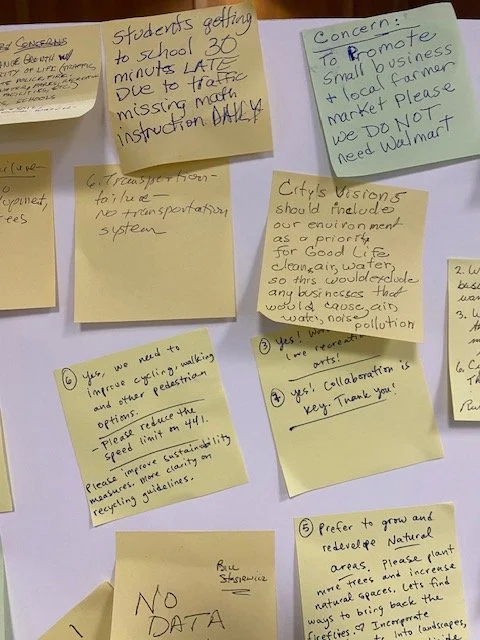 CONCERNS
GROWTH w/
OF LIFE (TRAFFIC,
POLICE, FIRE,
SCHOOLS
Students getting
to school 30
minutes LATE
Due to traffic
missing math
instruction DAILY
Concern:
To Promote
small business
+ local farmer
market Please
we DO NOT
need Walmart
6. Transportion-
failure-
No transportation
system
City's Visions
should include
our environment
as a priority
for Good Life
clean, air, water,
so this would exclude
any businesses that
would cause, air
water, noise,
pollution
2. W
3. W
6. C
③ Yes!
love recreation
arts!
⑦ Yes! Collaboration is
key. Thank you!
⑥ Yes, we need to
improve cycling, walking
and other pedestrian
options.
- Please reduce the
speed limit on 441.
Please improve sustainability
measures. more clarity on
recycling guidelines.
Bill
NO
DATA
⑤ Prefer to grow and
redevelope Natural
areas. Please plant
more trees and increase
natural spaces. Lets find
ways to bring back the
fireflies. ♡ Incorporate
landscapes,